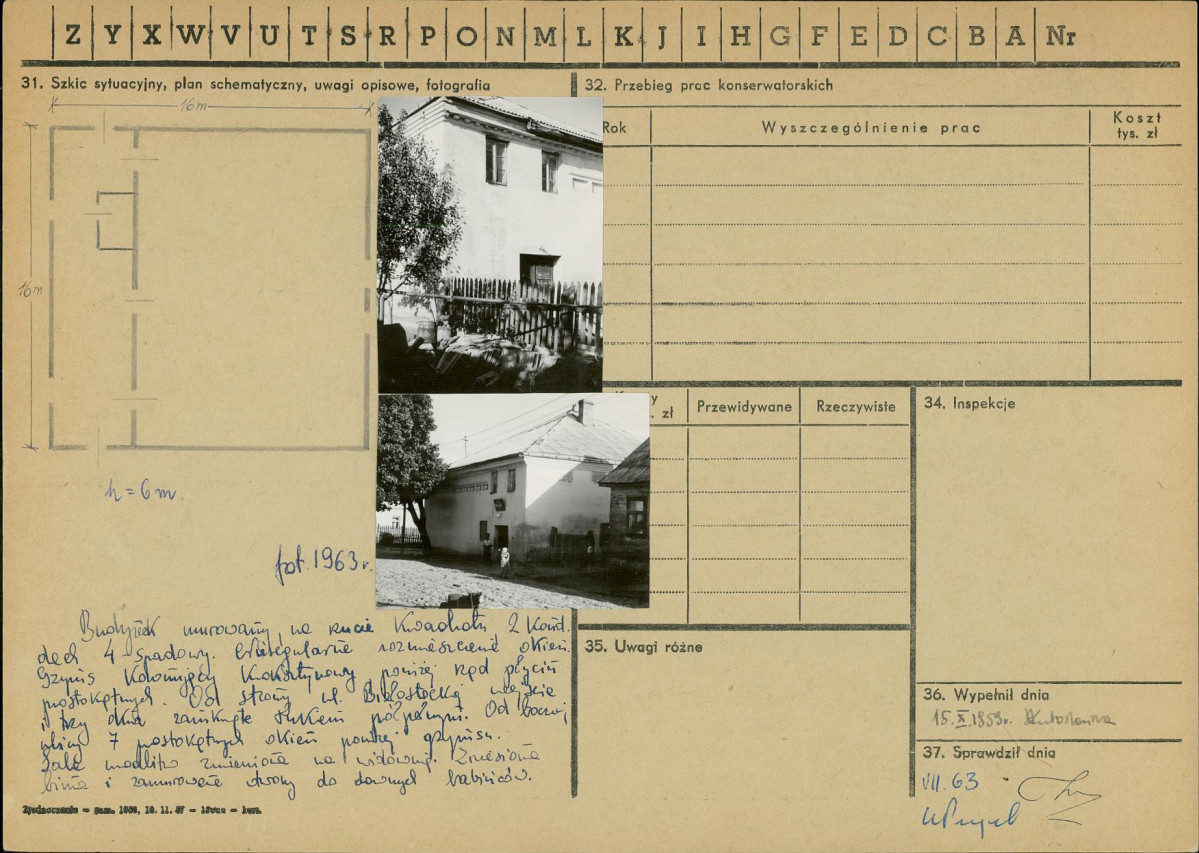 Z Y X W V U T S R P O N M L K J I H G F E D C B A Nr
31. Szkic sytuacyjny, plan schematyczny, uwagi opisowe, fotografia
16m
16m
h = 6m.
fot. 1963 r.
Budynek murowany, na rzucie kwadratu, 2 kond.
dach 4-spadowy. Nieregularne rozmieszczenie okien.
Gzyms koronujący kroksztynowy, poniżej rząd płycin
prostokątnych. Od strony ul. Białostockiej wejście
i trzy okna zamknięte łukiem półpełnym. Od bocznej
ulicy 7 prostokątnych okien poniżej gzymsu.
Sala modlitw zmieniona na widownię. Zniesiona
bima i zamurowane otwory do dawnych babińców.
32. Przebieg prac konserwatorskich
Rok
Wyszczególnienie prac
Koszt
tys. zł
y
. zł
Przewidywane
Rzeczywiste
34. Inspekcje
35. Uwagi różne
36. Wypełnił dnia
15.X.1959r.
37. Sprawdził dnia
VII. 63